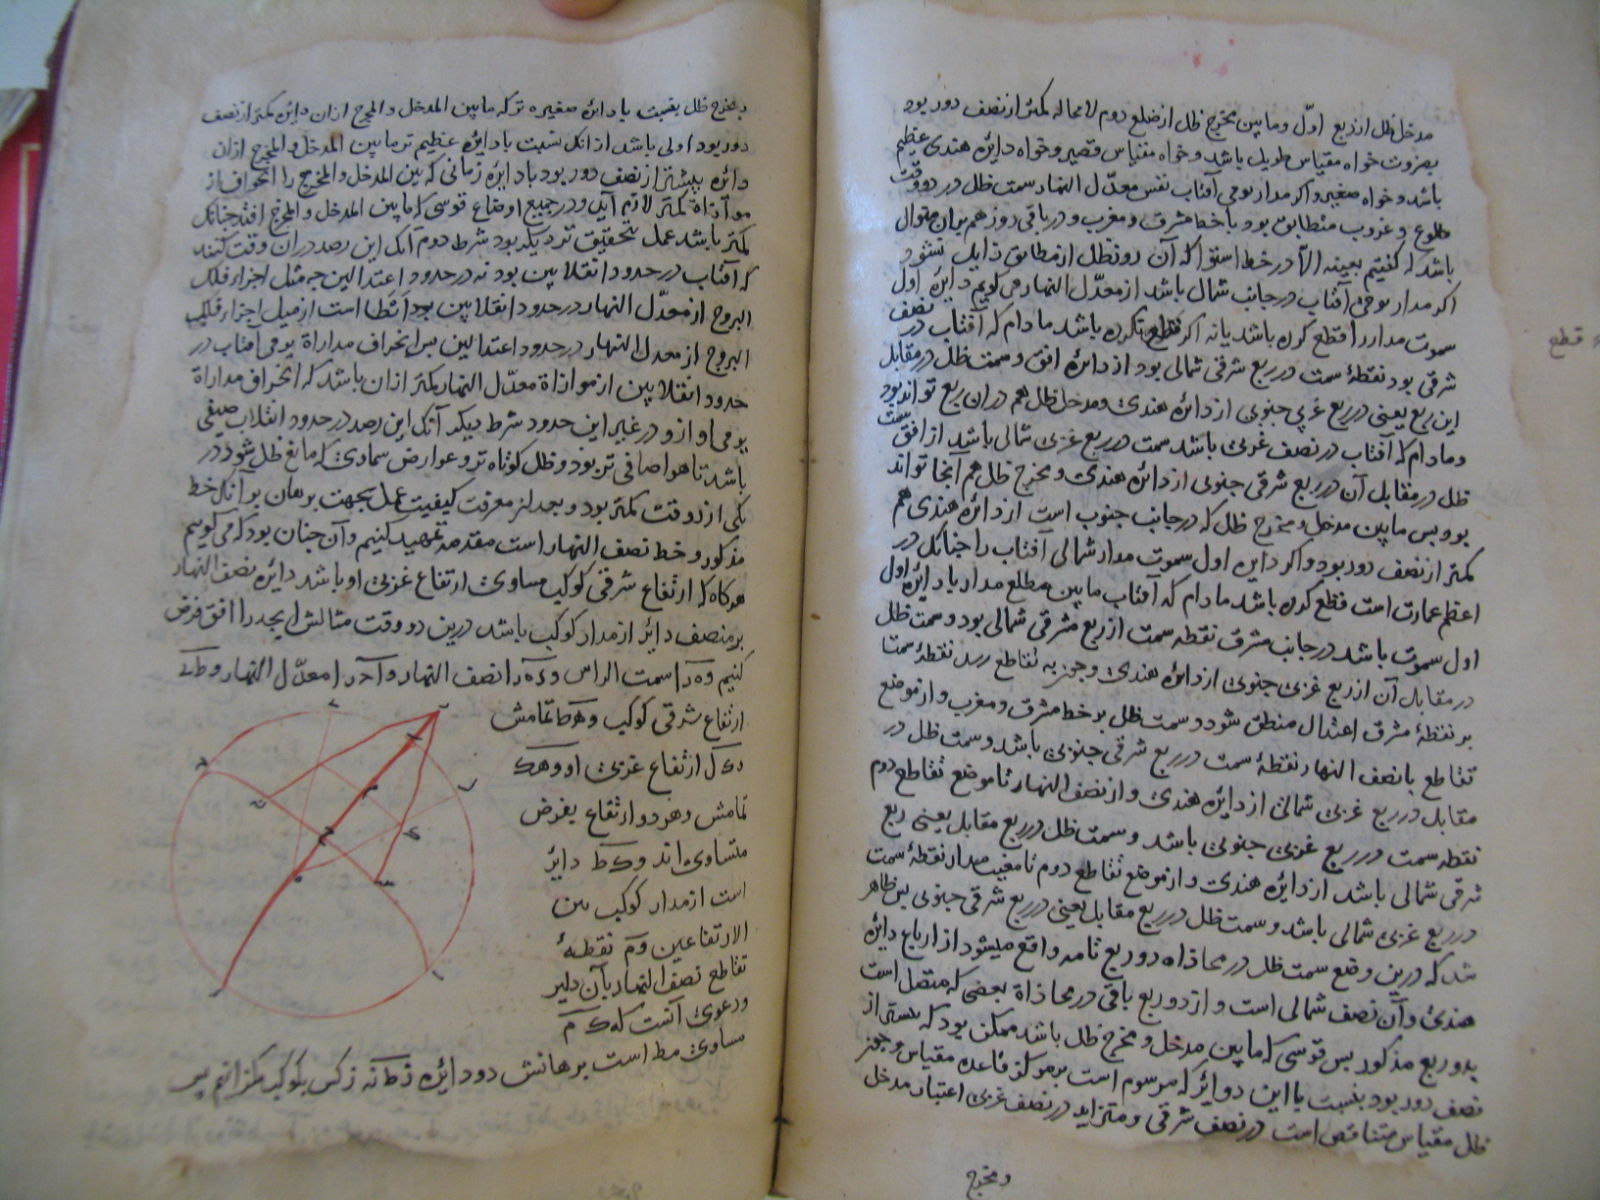 مدخل ظل از ربع اول و ما بین مخرج ظل از ضلع دوم لا محاله کمتر از نصف دور بود
بصروت خواه مقیاس طویل باشد و خواه مقیاس قصیر و خواه دایره هندی عظیم
باشد و خواه صغیر و اکر مدار یومی آفتاب نفس معدّل النهار سمت ظل در دو وقت
طلوع و غروب منطابق بود با خط مشرق و مغرب و در باقی روز هم بران منوال
باشد که کفتیم بعینه الا در خط استوا که آن روز ظل از مطابق زایل نشود و
اکر مدار یومی آفتاب در جانب شمال باشد از معدّل النهار می کویم دایره اول
سموت مدار را قطع کرده باشد یا نه اکر قطع نکرده باشد مادام که آفتاب در نصف
شرقی بود نقطهٔ سمت در ربع شرقی شمالی بود از دائره افق و سمت ظل در مقابل
این ربع یعنی در ربع غربی جنوبی از دائره هندی و مدخل ظل هم در ان ربع تواند بود
و مادام که آفتاب در نصف غربی باشد سمت در ربع غربی شمالی باشد از افق و سمت
ظل در مقابل آن در ربع شرقی جنوبی از دائره هندی و مخرج ظل هم آنجا تواند
بود پس ما بین مدخل و مخرج ظل که در جانب جنوب است از دائره هندی هم
کمتر از نصف دور بود و اکر دایره اول سموت مدار شمالی آفتاب را چنانک در
اعظم عمارت است قطع کرده باشد مادام که آفتاب ما بین مطلع مدار با دائره اول
اول سموت باشد در جانب مشرق نقطه سمت از ربع مشرقی شمالی بود و سمت ظل
در مقابل آن از ربع غربی جنوبی از دائره هندی و چون به تقاطع رسد نقطهٔ سمت
بر نقطهٔ مشرق اعتدال منطبق شود و سمت ظل بر خط مشرق و مغرب و از موضع
تقاطع با نصف النهار نقطهٔ سمت در ربع شرقی جنوبی باشد و سمت ظل در
مقابل در ربع غربی شمالی از دایره هندی و از نصف النهار تا موضع تقاطع دوم
نقطه سمت در ربع غربی جنوبی باشد و سمت ظل در ربع مقابل یعنی ربع
شرقی شمالی باشد از دایره هندی و از موضع تقاطع دوم تا مغیب مدار نقطهٔ سمت
در ربع غربی شمالی باشد و سمت ظل در ربع مقابل یعنی در ربع شرقی جنوبی پس ظاهر
شد که درین وضع سمت ظل در محاذاه دو ربع تامه واقع میشود از ارباع دائره
هندی و آن نصف شمالی است و از دو ربع باقی در محاذاة بعضی که متصل است
بدو ربع مذکور پس قوسی که ما بین مدخل و مخرج ظل باشد ممکن بود که بیشتر از
نصف دور بود بنسبت با این دوایر که مرسوم است بر مرکز قاعده مقیاس و چون
ظل مقیاس متناقص است در نصف شرقی و متزاید در نصف غربی اعتبار مدخل
و مخرج
قطع
و مخرج ظل بنسبت با دایره صغیره تر که ما بین المدخل و المخرج از ان دایره کمتر از نصف
دور بود اولی باشد از انک نسبت با دایره عظیم تر ما بین المدخل و المخرج ازان
دائره بیشتر از نصف دور بود با دایره زمانی که بین المدخل و المخرج را انحراف از
موازاة کمتر لازم آید و در جمیع اوضاع قوسی که ما بین المدخل و المخرج افتد چنانک
کمتر باشد عمل بتحقیق نزدیکتر بود شرط دوم آنک این رصد در ان وقت کنند
که آفتاب در حدود انقلابین بود نه در حدود اعتدالین چه مثل اجزاء فلک
البروج از معدّل النهار در حدود انقلابین بود است از میل اجزاء فلک
البروج از معدل النهار در حدود اعتدالین پس انحراف مداراة یومی آفتاب در
حدود انقلابین از موازاة معدّل النهار کمتر از ان باشد که انحراف مداراة
یومی او از و در غیر این حدود شرط دیکر آنک این رصد در حدود انقلاب صیفی
باشد تا هوا صافی تر بود و ظل کوتاه تر و عوارض سماوی که مانع ظل شود در
یکی از دو وقت کمتر بود و بعد از معرفت کیفیت عمل بجهت برهان بر آنک خط
مذکور و خط نصف النهار است مقدمه تمهید کنیم و آن چنان بود که می کویم
هر کاه که ارتفاع شرقی کوکب مساوی ارتفاع غربی او باشد دایره نصف النهار
بر منصف دایر از مدار کوکب باشد درین دو وقت مثالش ابجد را افق فرض
کنیم و ه را سمت الراس و را نصف النهار و را معدّل النهار و
ارتفاع شرقی کوکب و تمامش
و ارتفاع غربی او و
تمامش و هر دو ارتفاع بفرض
متساوی اند و دایر
است از مدار کوکب بین
الارتفاعین و م نقطهٔ
تقاطع نصف النهار بآن دایر
و دعوی آنست که م
مساوی مط است برهانش دو دایره بکوکب بکذرانیم پس